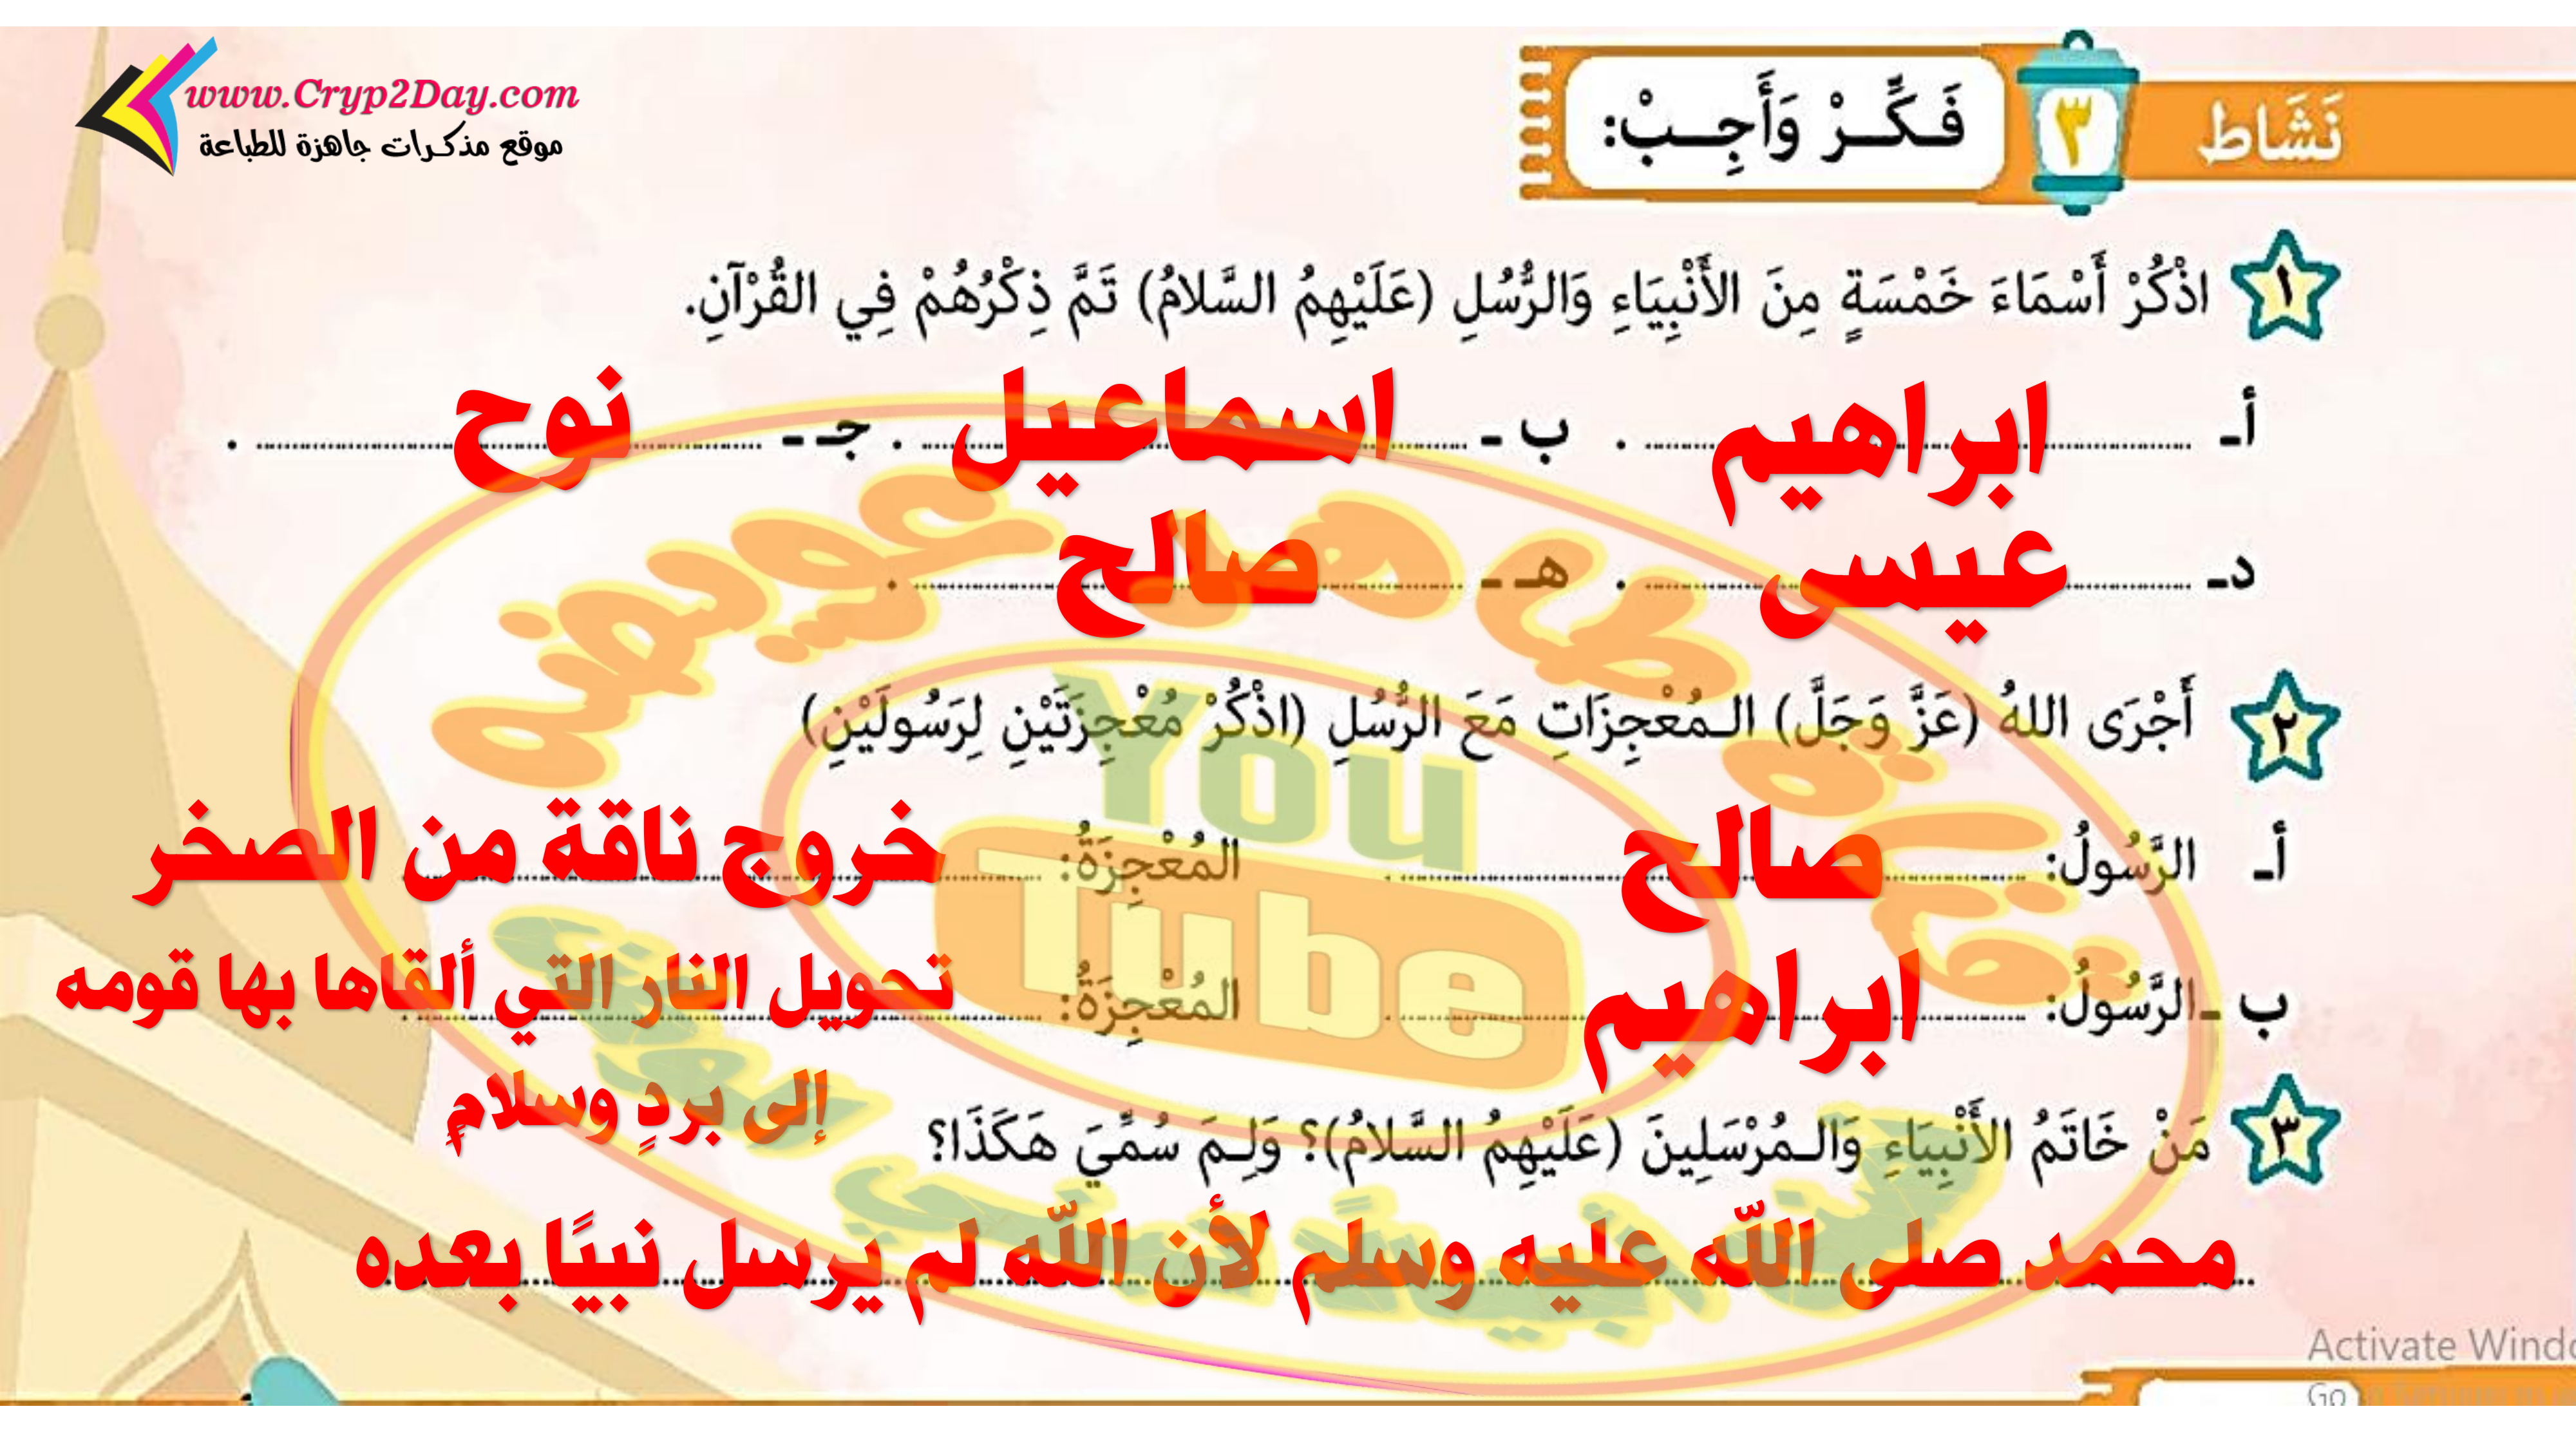 www.Cryp2Day.com
موقع مذكرات جاهزة للطباعة
نَشَاط ٣ فَكِّرْ وَأَجِبْ:
١ اذْكُرْ أَسْمَاءَ خَمْسَةٍ مِنَ الأَنْبِيَاءِ وَالرُّسُلِ (عَلَيْهِمُ السَّلامُ) تَمَّ ذِكْرُهُمْ فِي القُرْآنِ.
أـ ابراهيم . ب ـ اسماعيل . جـ ـ نوح .
دـ عيسى . هـ ـ صالح .
٢ أَجْرَى اللهُ (عَزَّ وَجَلَّ) الـمُعْجِزَاتِ مَعَ الرُّسُلِ (اذْكُرْ مُعْجِزَتَيْنِ لِرَسُولَيْنِ)
أـ الرَّسُولُ: صالح المُعْجِزَةُ: خروج ناقة من الصخر
ب ـ الرَّسُولُ: ابراهيم المُعْجِزَةُ: تحويل النار التي ألقاها بها قومه
إلى بردٍ وسلامٍ
٣ مَنْ خَاتَمُ الأَنْبِيَاءِ وَالـمُرْسَلِينَ (عَلَيْهِمُ السَّلامُ)؟ وَلِـمَ سُمِّيَ هَكَذَا؟
محمد صلى الله عليه وسلم لأن الله لم يرسل نبيًا بعده
You
Tube
Activate Windo
Go